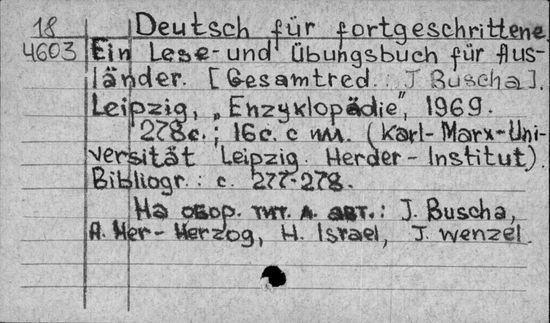 18 Deutsch für fortgeschrittene.
4603 Ein Lese- und Übungsbuch für Aus-
länder. [Gesamtred. J. Buscha].
Leipzig, „Enzyklopädie", 1969.
278c.; 16c. с илл. (Karl-Marx-Uni-
versität Leipzig. Herder-Institut).
Bibliogr.: с. 277-278.
На обор. тит. л. авт.: J. Buscha,
A. Her-Herzog, H. Israel, J. Wenzel.